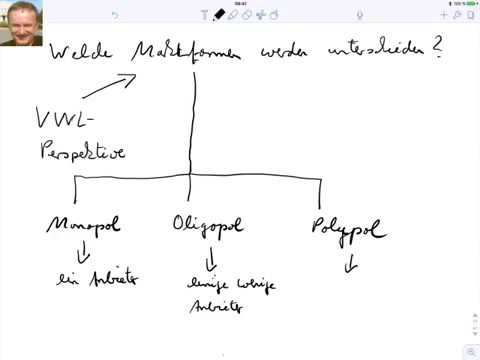 08:41
Welche Marktformen werden unterschieden?
VWL-
Perspektive
Monopol Oligopol Polypol
ein Anbieter
einige wenige
Anbieter